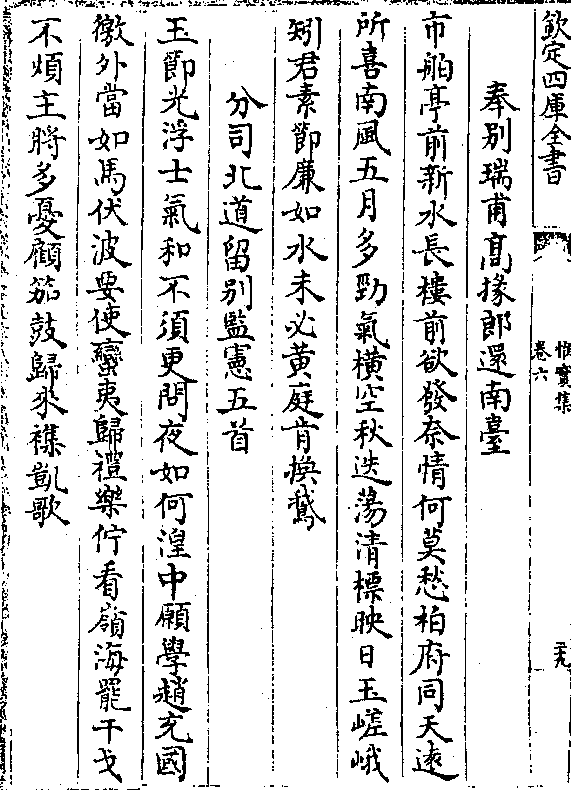 欽定四庫全書
惟實集
卷六
二十九
奉别瑞甫髙掾郎還南臺
市舶亭前新水長樓前欲發奈情何莫愁柏府同天逺
所喜南風五月多勁氣横空秋迭蕩清標映日玉嵯峨
矧君素節廉如水未必黄庭肯换鵞
分司北道留别監憲五首
玉節光浮士氣和不須更問夜如何湟中願學趙充國
徼外當如馬伏波要使蠻夷歸禮樂佇看嶺海罷干戈
不煩主將多憂顧笳鼓歸來襍凱歌